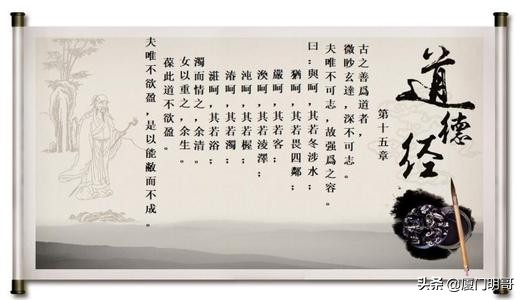 道德经
第十五章
古之善爲道者，
微眇玄達，深不可志。
夫唯不可志，故强爲之容。
曰：與呵，其若冬涉水；
猶呵，其若畏四鄰；
嚴呵，其若客；
渙呵，其若淩澤；
沌呵，其若樸；
湷呵，其若濁；
湛呵，其若浴；
濁而情之，余清。
女以重之，余生。
葆此道不欲盈。
夫唯不欲盈，是以能敝而不成。
头条@厦门明哥